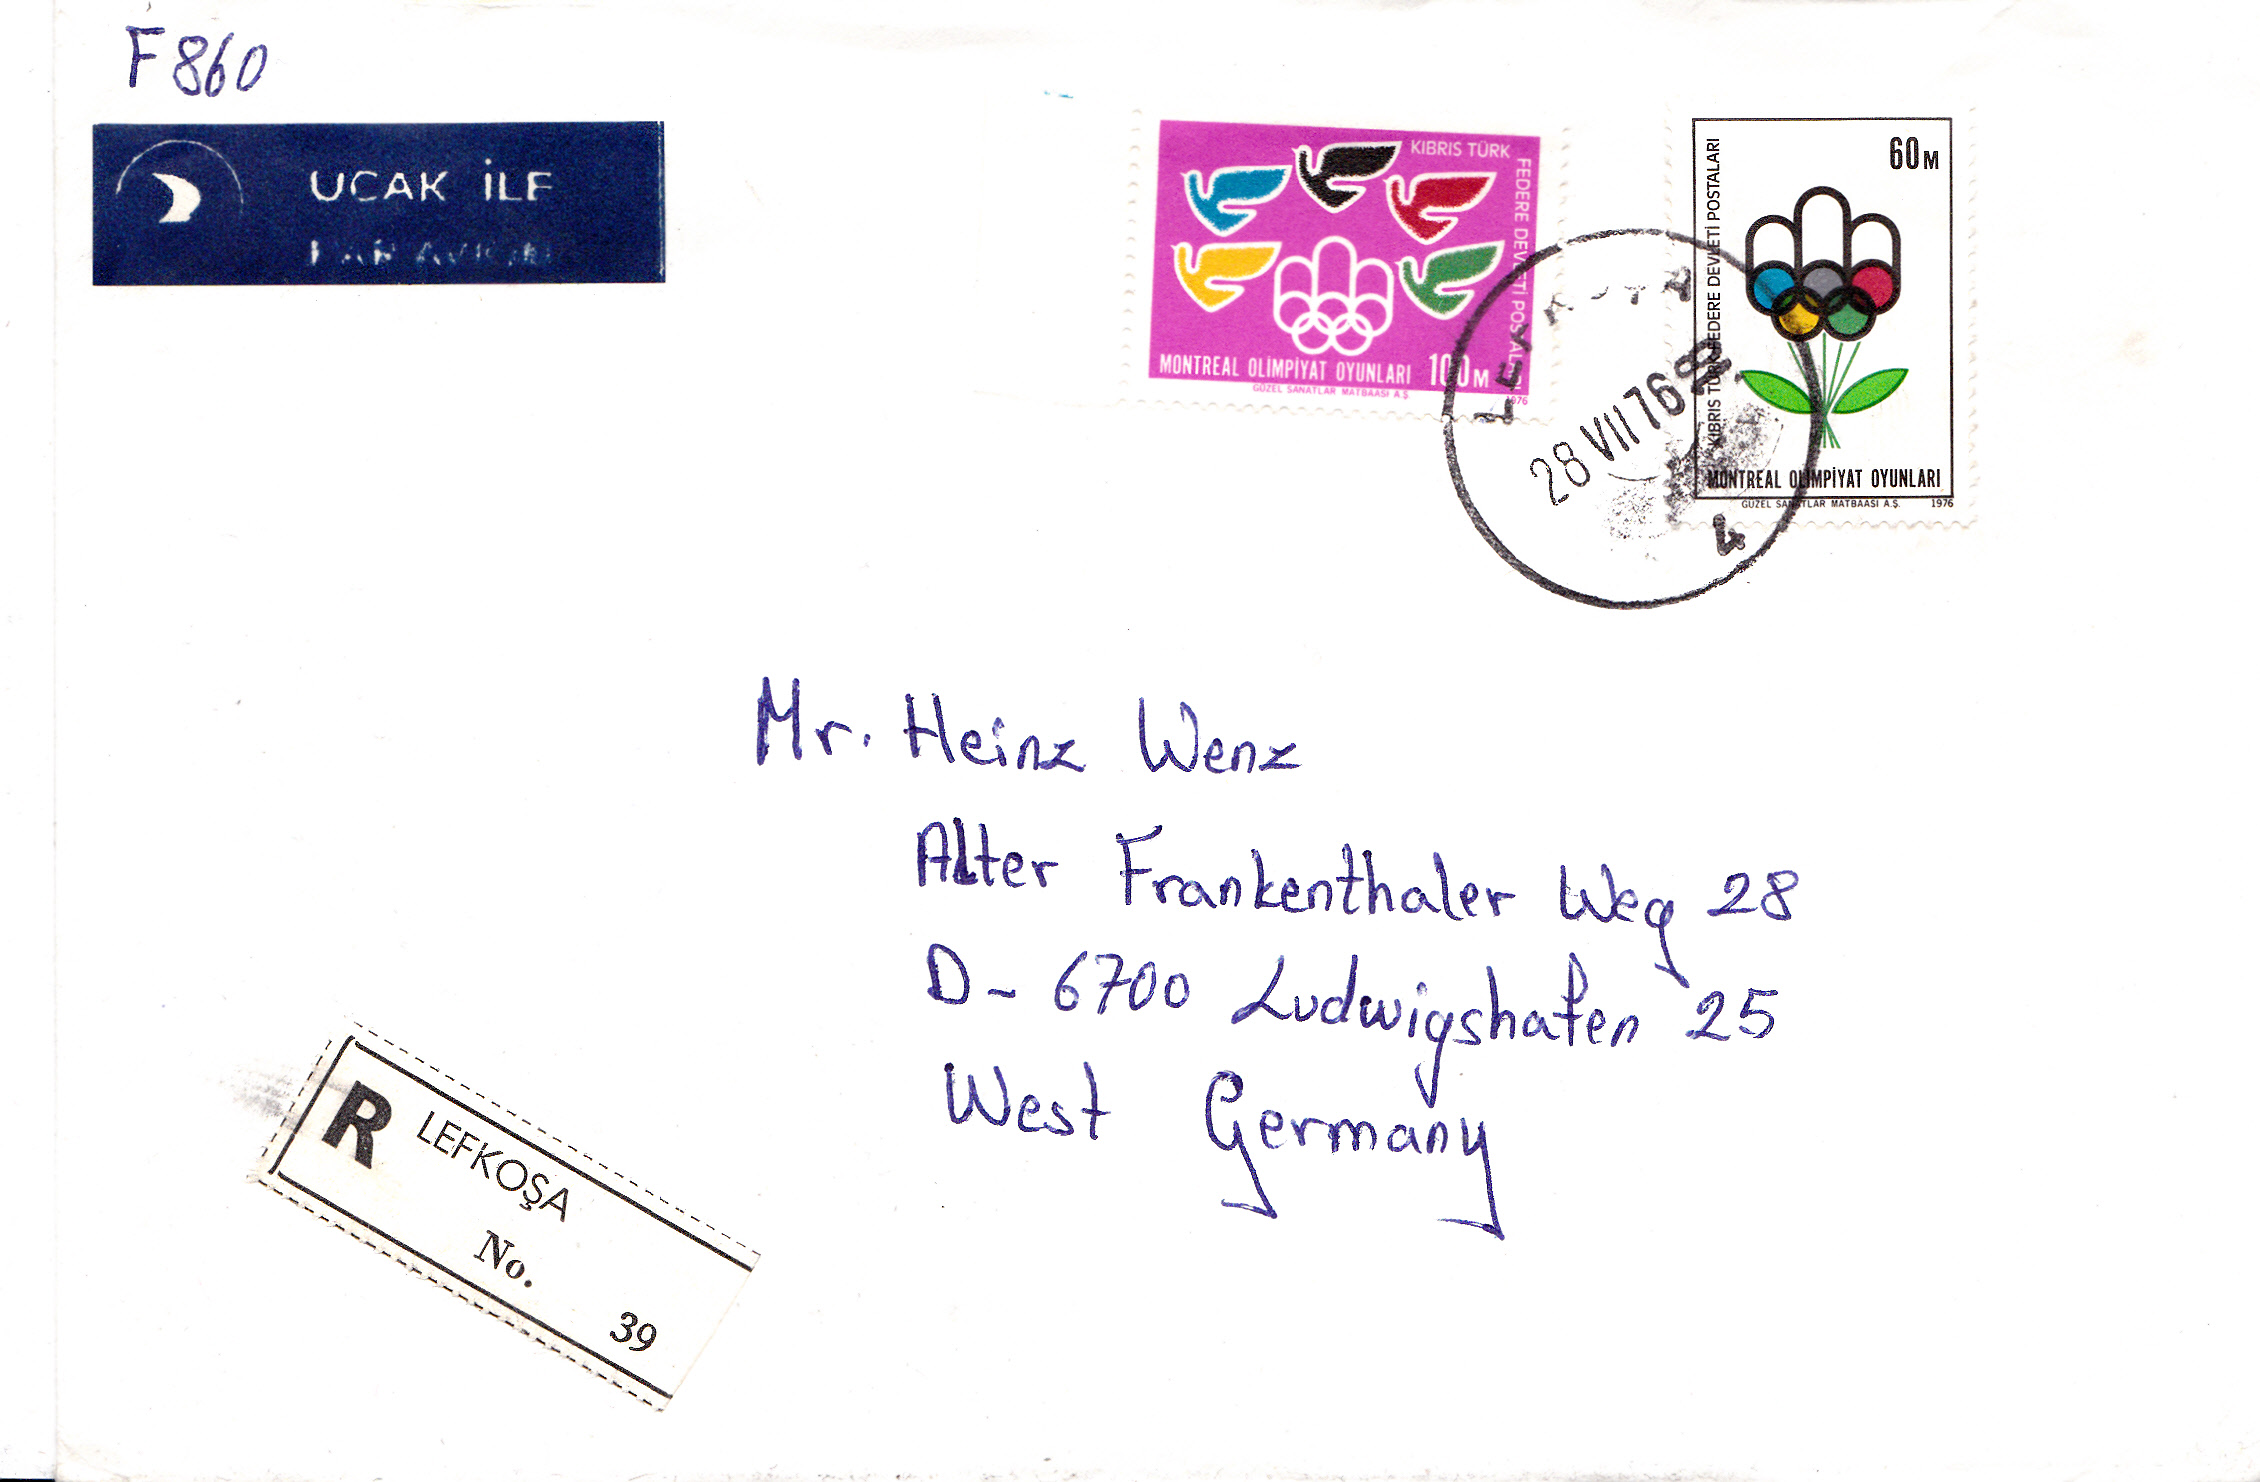 F 860
UCAK İLE
PAR AVION
KIBRIS TÜRK
FEDERE DEVLETİ POSTALARI
MONTREAL OLİMPİYAT OYUNLARI 100 M
GÜZEL SANATLAR MATBAASI A.Ş. 1976
60 M
KIBRIS TÜRK FEDERE DEVLETİ POSTALARI
MONTREAL OLİMPİYAT OYUNLARI
GÜZEL SANATLAR MATBAASI A.Ş. 1976
LEFKOŞA
28 VII 76
4
Mr. Heinz Wenz
Alter Frankenthaler Weg 28
D- 6700 Ludwigshafen 25
West Germany
R LEFKOŞA
No.
39